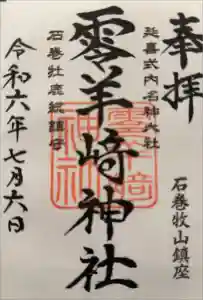 奉拝
延喜式内名神大社
石巻牧山鎮座
零羊崎神社
石巻牡鹿総鎮守
令和六年七月六日